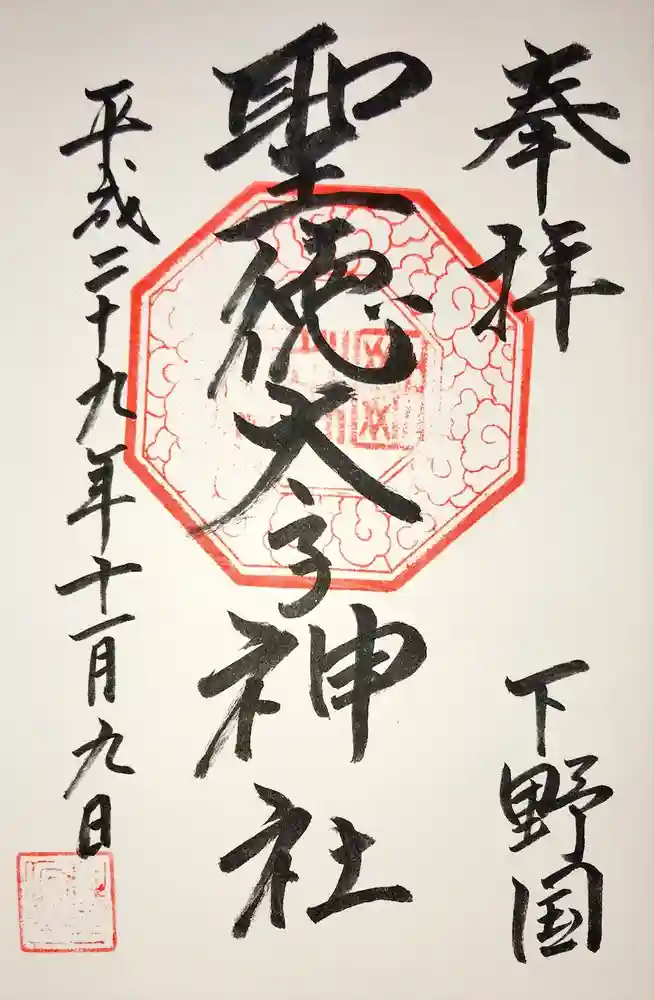 奉拝
下野国
聖徳太子神社
平成二十九年十一月九日